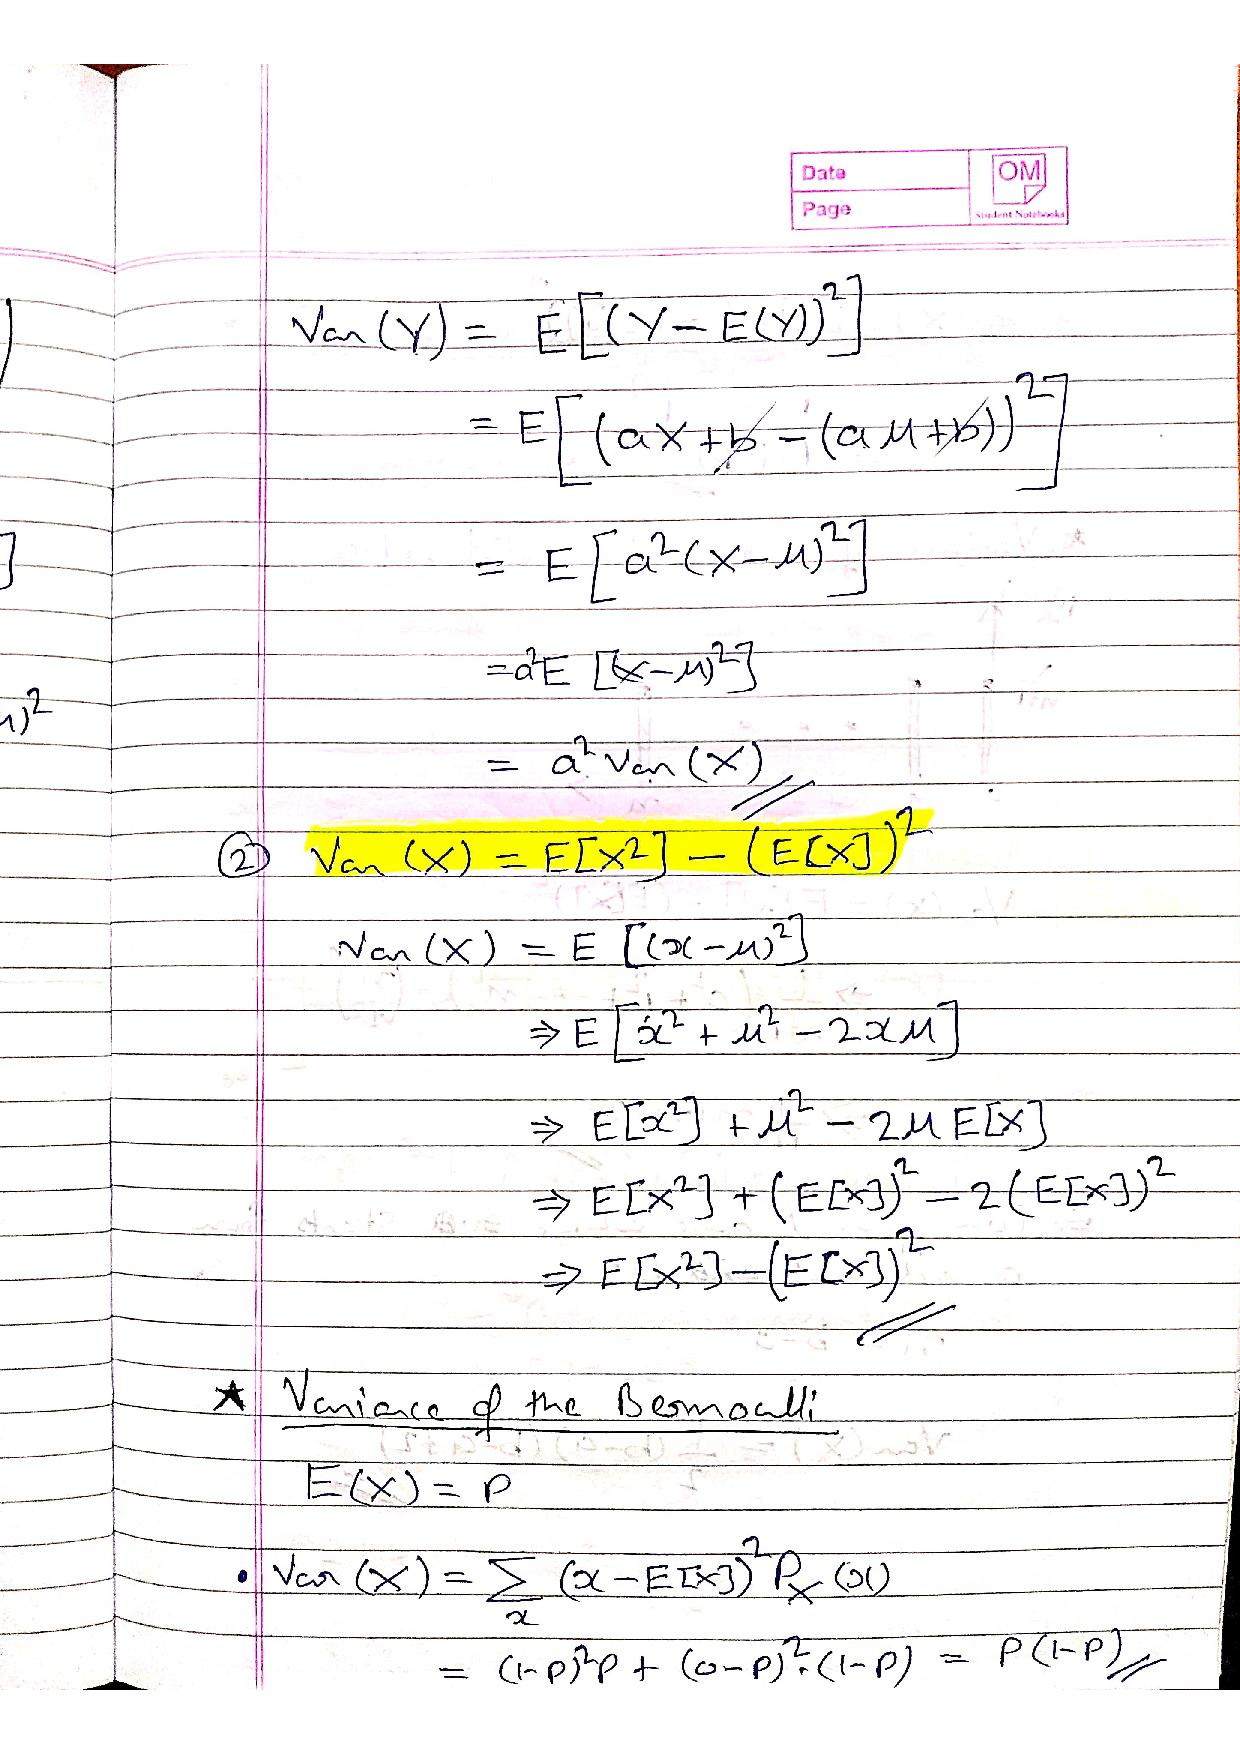 Date
OM
Page
Student Notebooks
Var(Y) = E[(Y - E(Y))²]
= E[(aX + b - (aμ + b))²]
= E[a²(X - μ)²]
= a²E[(X - μ)²]
= a² Var(X)
② Var(X) = E[X²] - (E[X])²
Var(X) = E[(x - μ)²]
⇒ E[x² + μ² - 2xμ]
⇒ E[x²] + μ² - 2μE[X]
⇒ E[X²] + (E[X])² - 2(E[X])²
⇒ E[X²] - (E[X])²
★ Variance of the Bernoulli
E(X) = P
• Var(X) = Σ (x - E[X])² P_X(x)
x
= (1-P)²P + (0-P)²·(1-P) = P(1-P)
μ)²